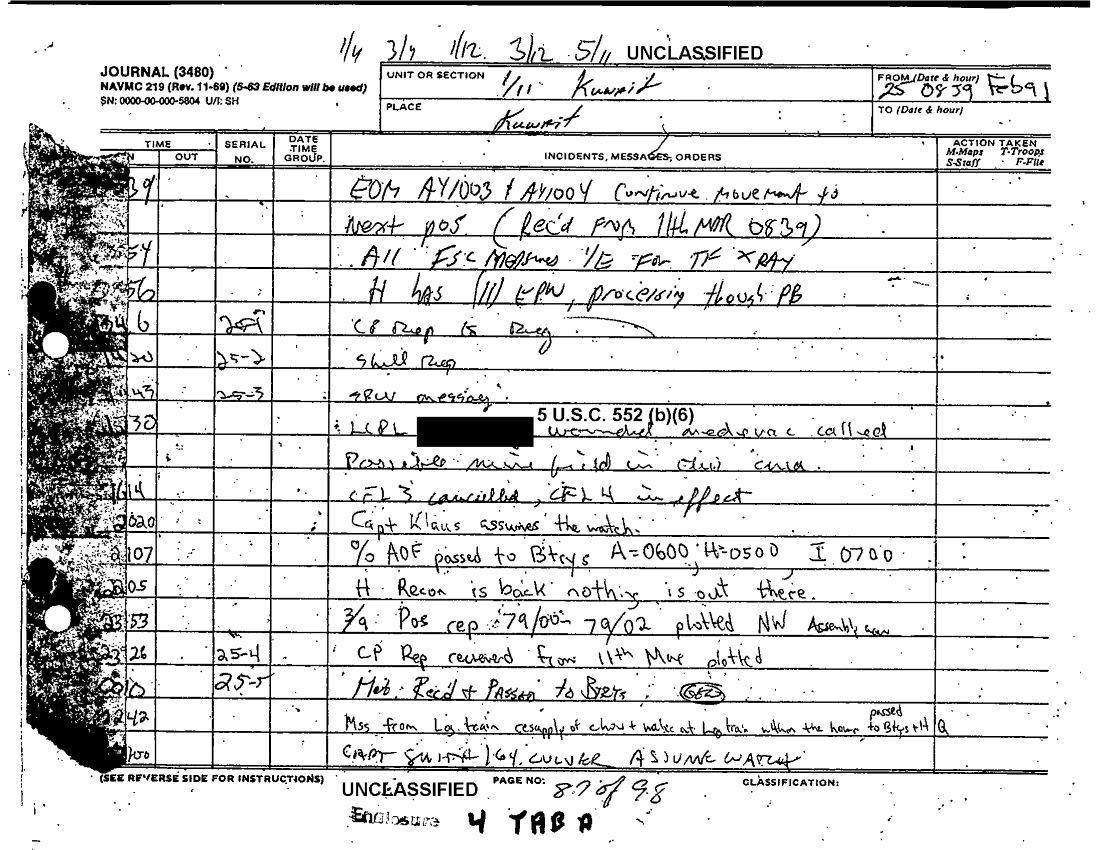 1/4 3/9 1/12 3/12 5/11 UNCLASSIFIED
JOURNAL (3480)
NAVMC 219 (Rev. 11-69) (5-63 Edition will be used)
SN: 0000-00-000-5804 U/I: SH
UNIT OR SECTION
1/11 Kuwait
FROM (Date & hour)
25 0839 Feb 91
PLACE
Kuwait
TO (Date & hour)
TIME
N OUT
SERIAL NO.
DATE TIME GROUP.
INCIDENTS, MESSAGES, ORDERS
ACTION TAKEN
M-Maps T-Troops
S-Staff F-File
39 EOM AY1003 & AY1004 Continue movement to
Next pos (Rec'd from 11th MAR 0839)
54 All FSC Measures I/E For TF XRAY
56 H has (11) EPW, processing though PB
6 25-1 CP Rep to Reg
20 25-2 Shell Rep
43 25-3 EPW message
30 LCPL 5 U.S.C. 552 (b)(6) wounded medevac called
Possible mine field in this area.
1614 CFL 3 cancelled, CFL 4 in effect
2020 Capt Klaus assumes the watch.
2107 % AOF passed to Btrys A=0600, H=0500, I 0700
05 H Recon is back nothing is out there.
2353 3/9 Pos rep 79/00 - 79/02 plotted NW Assembly area
2326 25-4 CP Rep received from 11th Mar plotted
25-5 Rec'd & Passed to BTRYS.
42 Mss from Log train resupply of chow & water at Log train within the hour passed to Btrys & HQ
00 CAPT SMITH / GY. CULVER ASSUME WATCH
(SEE REVERSE SIDE FOR INSTRUCTIONS)
UNCLASSIFIED
PAGE NO: 87 of 98
CLASSIFICATION:
Enclosure 4 TAB A